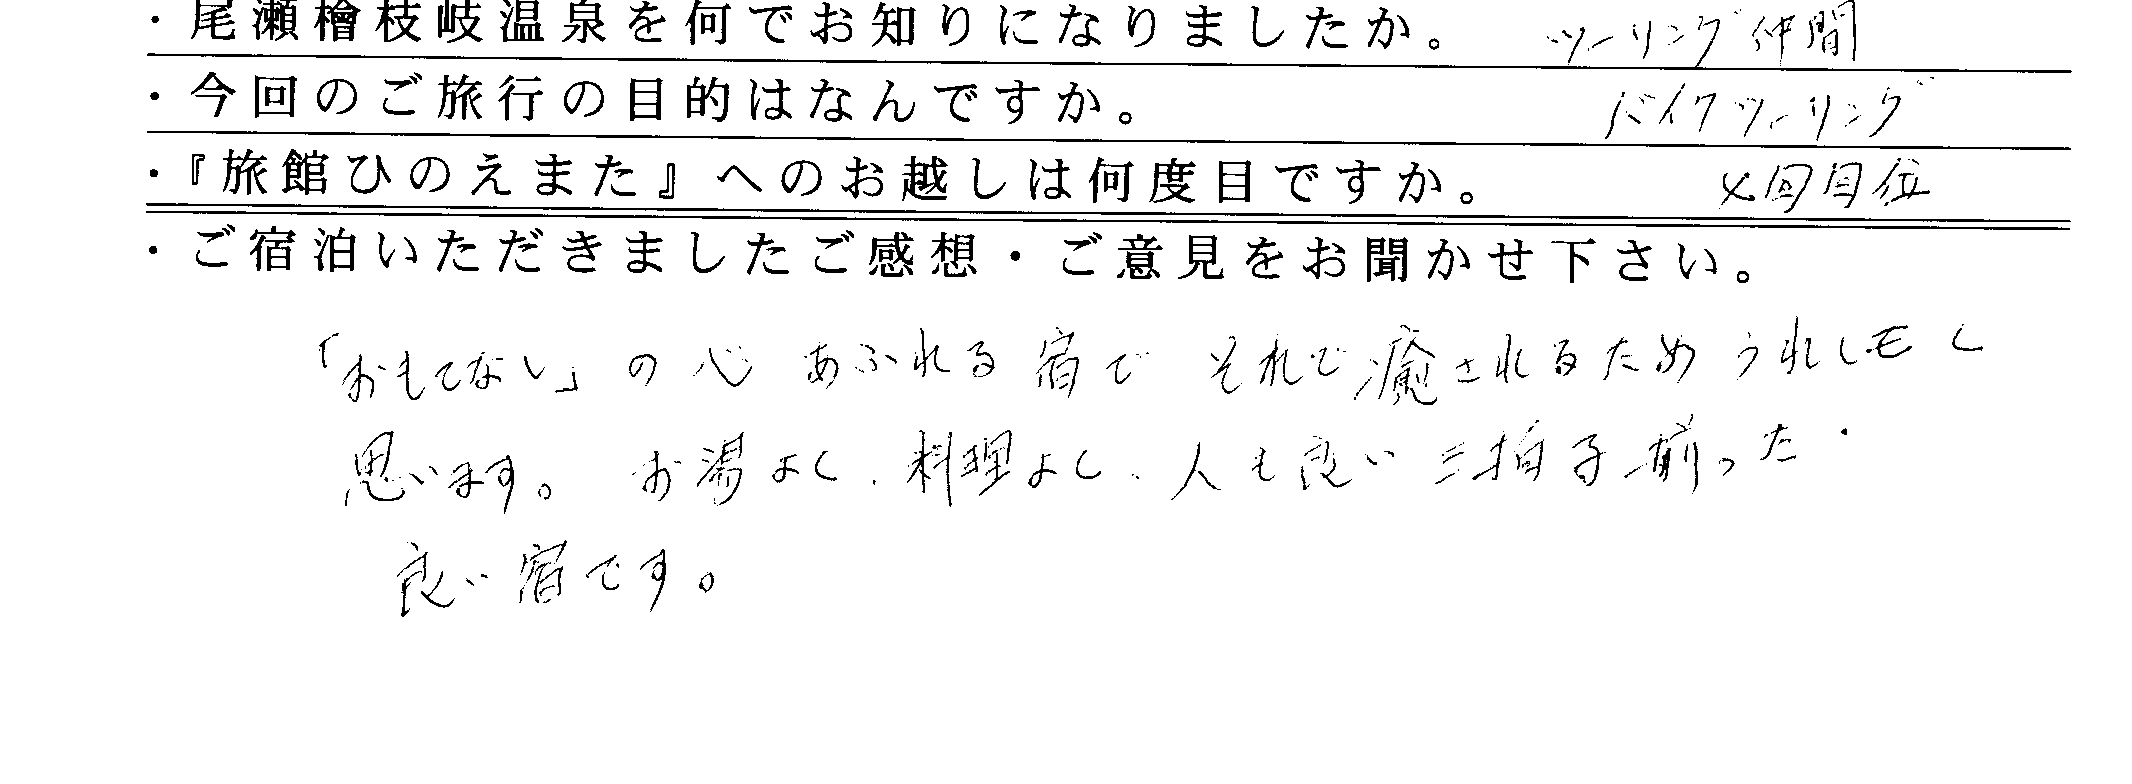 ・尾瀬檜枝岐温泉を何でお知りになりましたか。 ツーリング仲間
・今回のご旅行の目的はなんですか。 バイクツーリング
・『旅館ひのえまた』へのお越しは何度目ですか。 回目位
・ご宿泊いただきましたご感想・ご意見をお聞かせ下さい。
「おもてなし」の心 あふれる宿で それで癒されるため うれしモく
思います。 お湯よし、料理よし、人も良い 三拍子揃った・
良い宿です。